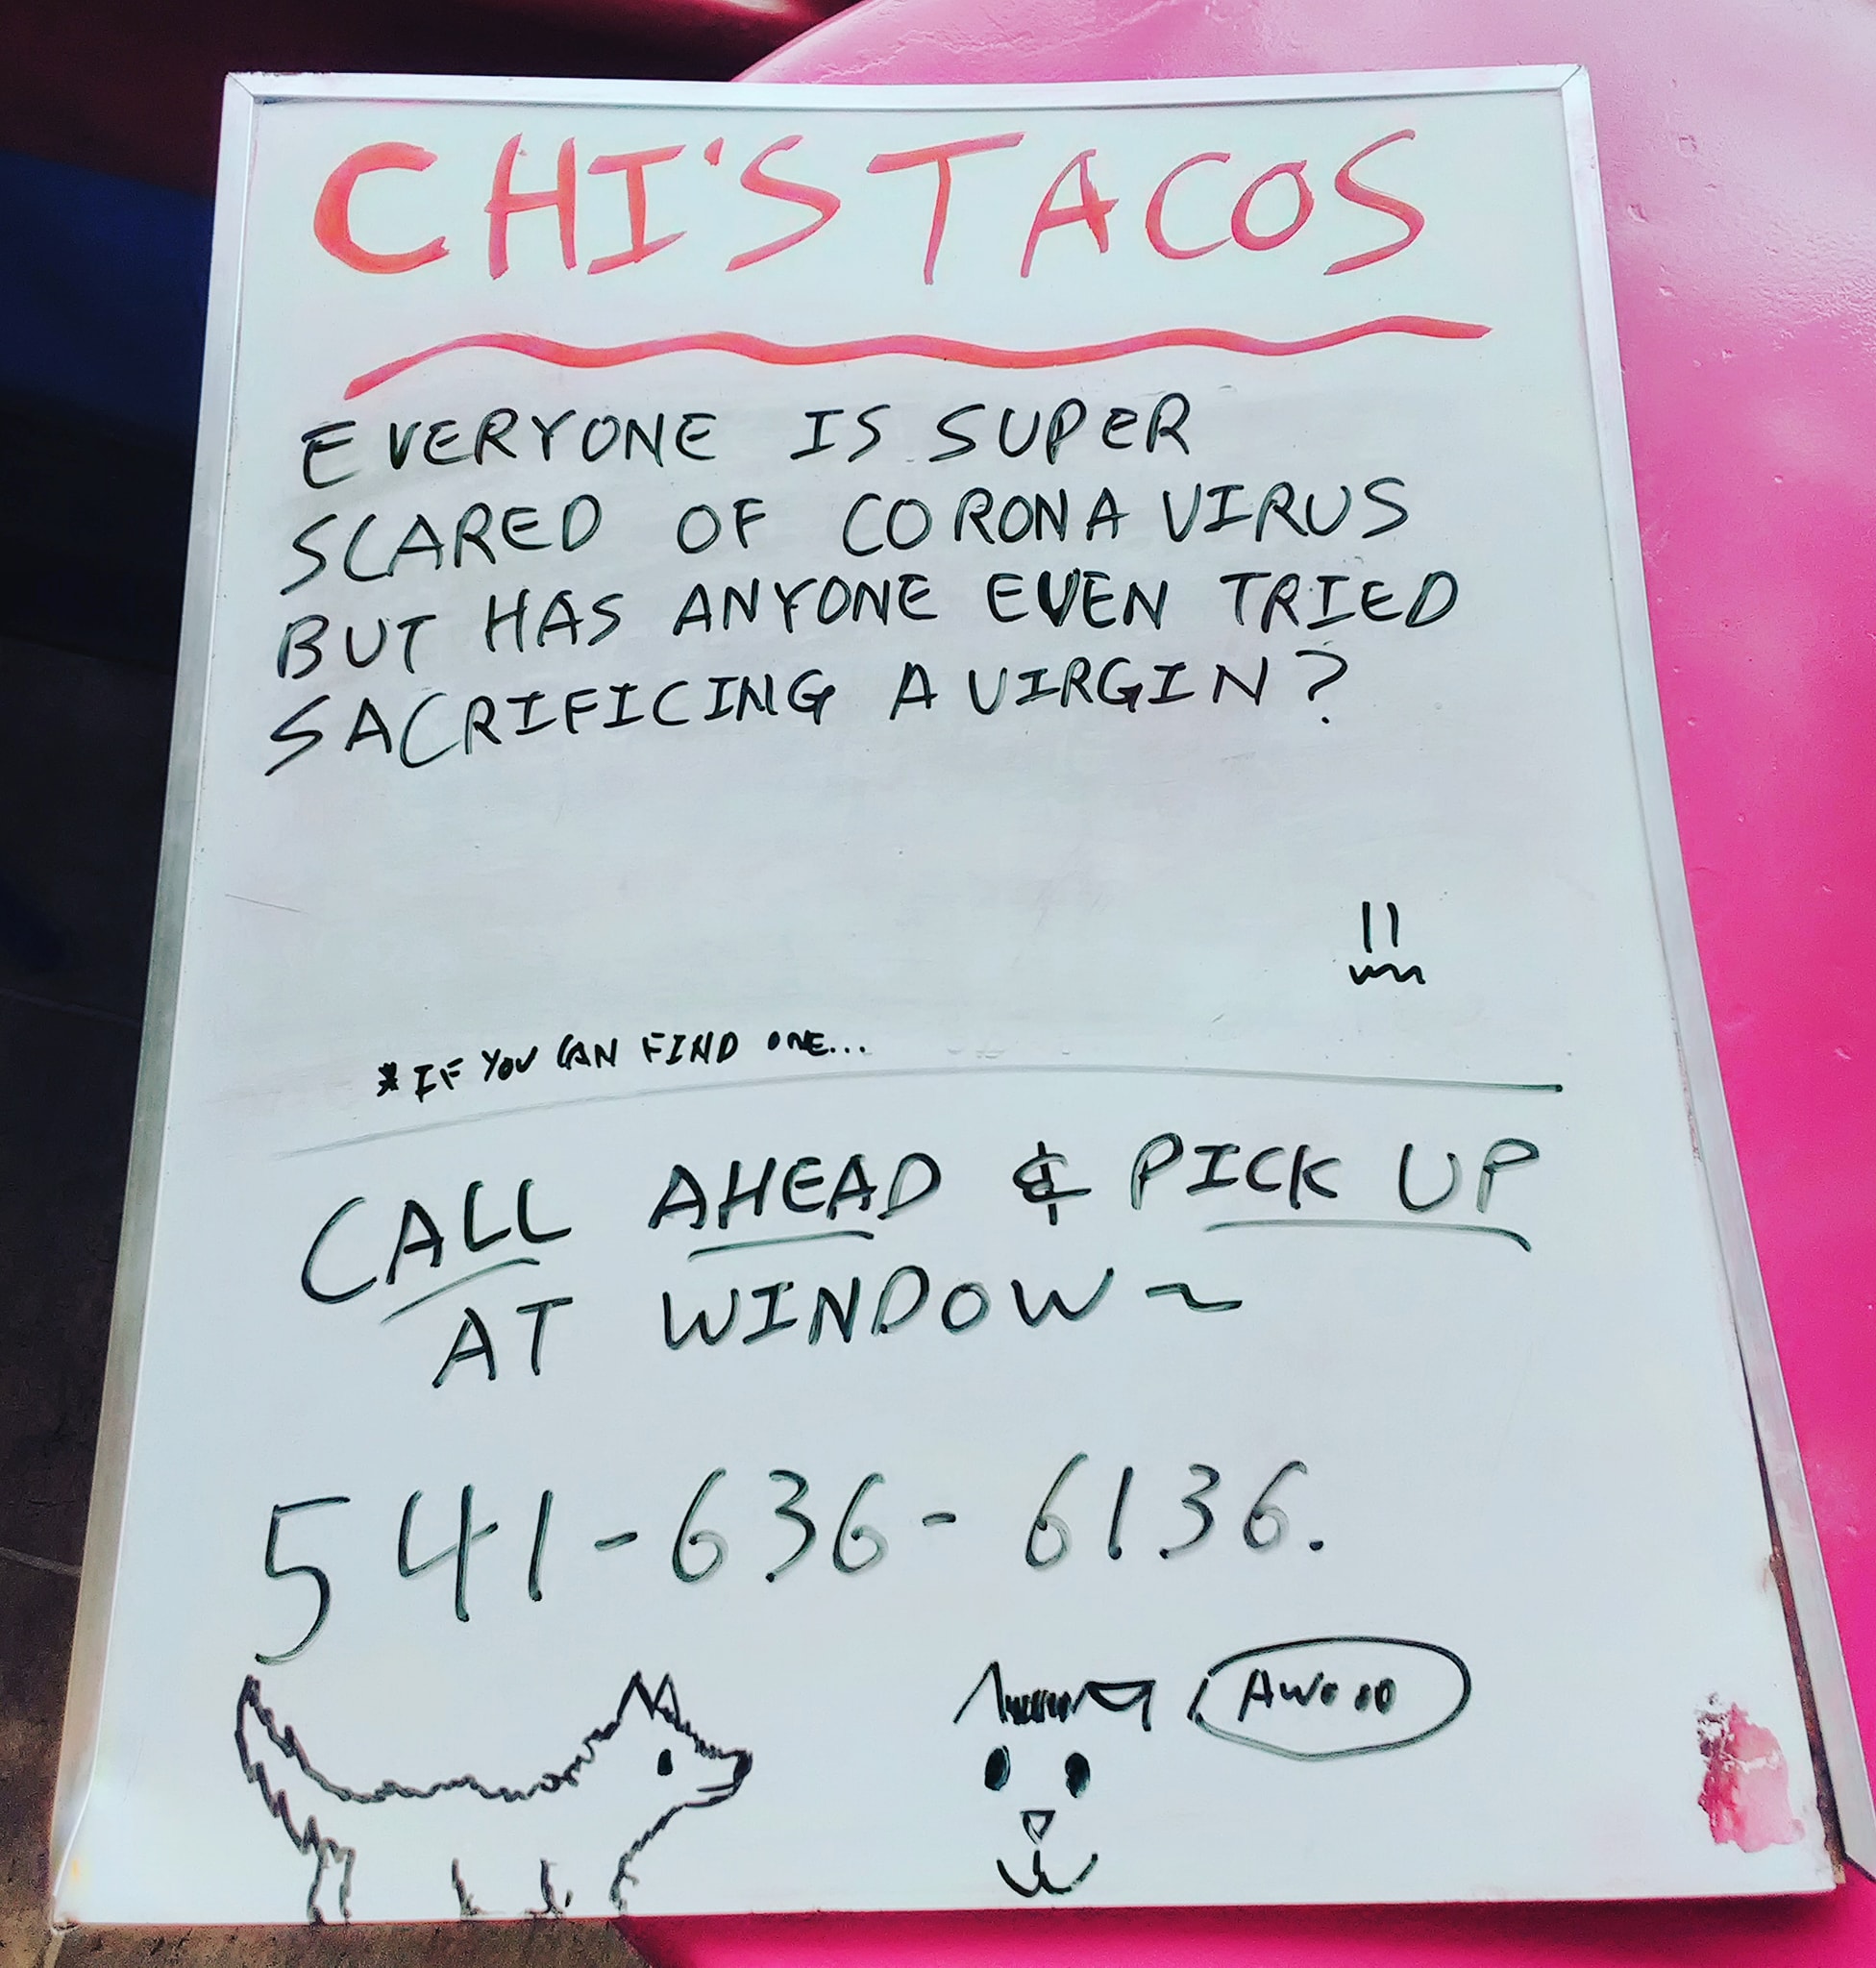 CHI'S TACOS
EVERYONE IS SUPER
SCARED OF CORONA VIRUS
BUT HAS ANYONE EVEN TRIED
SACRIFICING A VIRGIN?
*IF YOU CAN FIND ONE...
CALL AHEAD & PICK UP
AT WINDOW ~
541-636-6136.
AWOOO